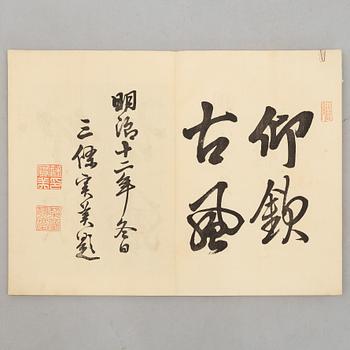 仰欽
古風
明治十二年冬日
三條実美題